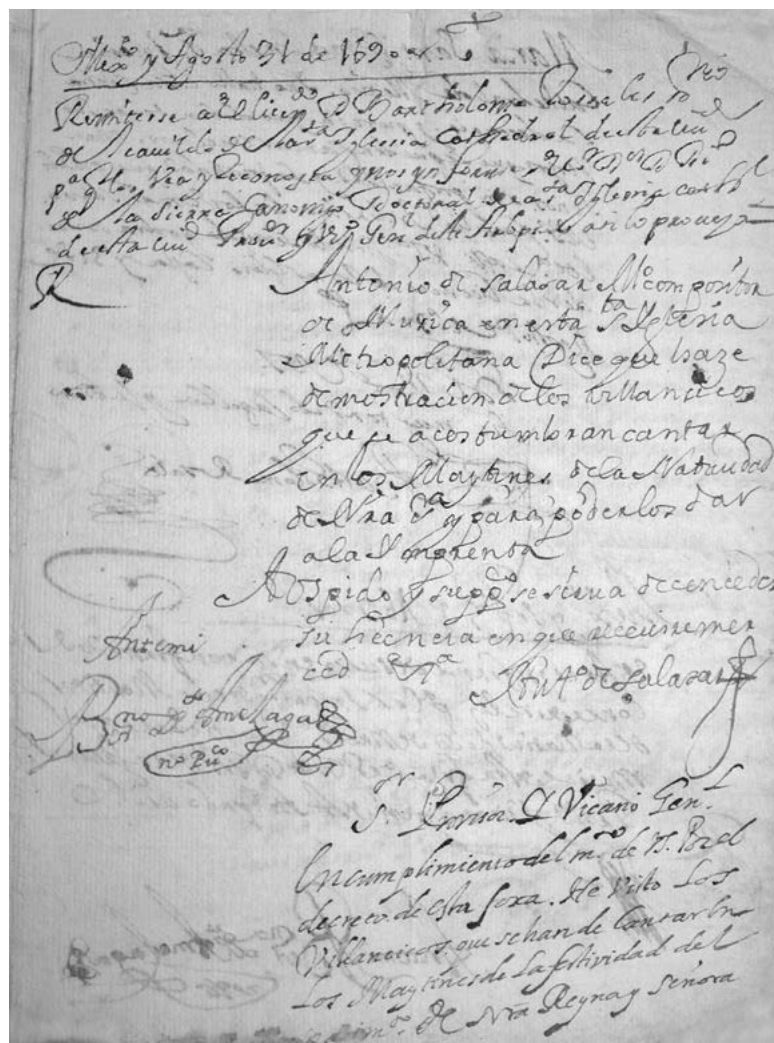 Mexco y Agosto 31 de 1690 as
Remitese al licendo D Bartholome Rosales
de la Sta Iglesia Cathedral desta ciud
pa q los vea y reconosca y nos ynforme
de la Sierra Canonigo Doctoral de esta Sta Iglesia
desta ciud y Vico Genl deste Arzpdo asi lo proveyo
Antonio de Salazar Mo compositor
de Mussica en esta sta Yglesia
Metropolitana Dice que haze
demostracion de los villancicos
que se acostumbran cantar
en los Maytines de la Natiuidad
de Nra Sa y para poderlos dar
a la Ymprenta
A VS pido y suppco se sirua de conceder
su licencia en que reciuire mer
ced
Antto de Salazar
Antemi
Bno de Amesaga
no Puco
Sr Provisor y Vicario Genl
En cumplimiento del mto de VS. Por el
decreto de esta foxa. He Visto Los
Villancicos que se han de Cantar En
Los Maytines de La festividad del
de Nra Reyna y Señora